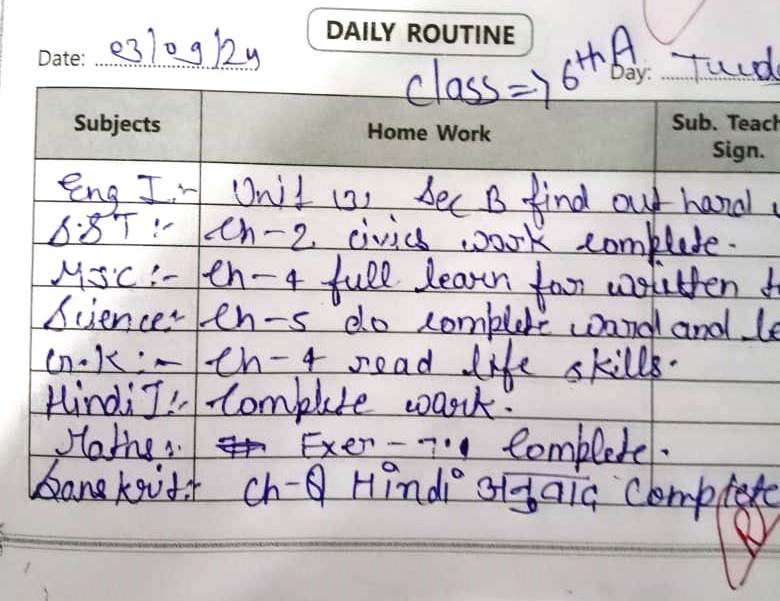 DAILY ROUTINE
Date: 03/09/24
Class => 6th A Day:
Subjects Home Work Sub. Teach
Sign.
Eng I :- Unit 13, Sec B find out hard
S.ST :- Ch-2 civics work complete.
M.S.C :- Ch-4 full learn for written
Science :- Ch-5 do complete and
G.K :- Ch-4 read life skills.
Hindi I :- Complete work.
Maths :- Exer-7.1 Complete.
Sanskrit :- Ch-8 Hindi अनुवाद Complete